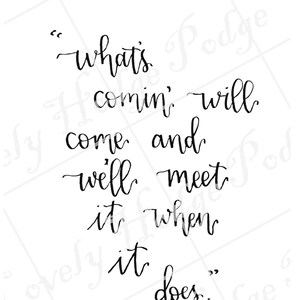 "what's
comin' will
come and
we'll meet
it when
it
does."
Lovely Hodge Podge